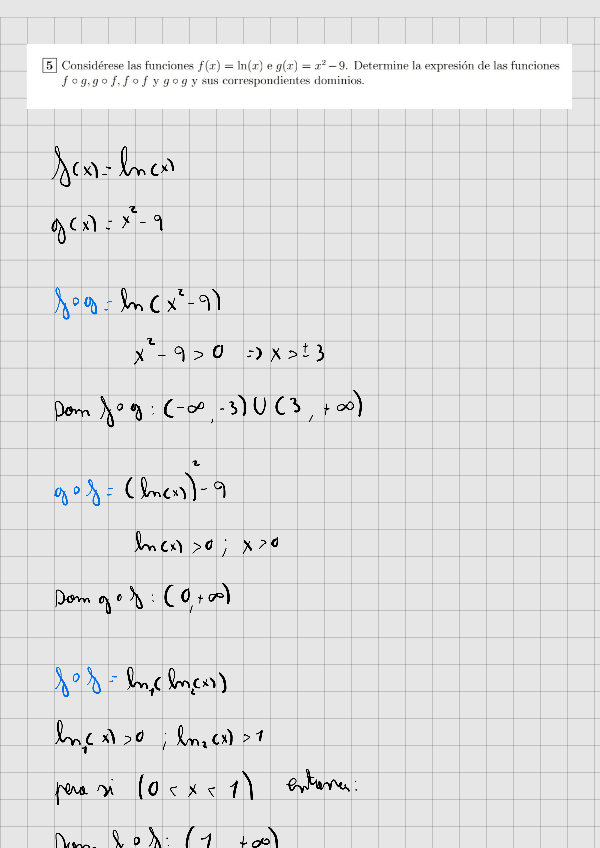 5 Considérese las funciones f(x) = ln(x) e g(x) = x² − 9. Determine la expresión de las funciones
f ∘ g, g ∘ f, f ∘ f y g ∘ g y sus correspondientes dominios.
f(x) = ln(x)
g(x) = x² - 9
f∘g = ln(x² - 9)
x² - 9 > 0 => x > ± 3
Dom f∘g : (-∞, -3) U (3, +∞)
g∘f = (ln(x))² - 9
ln(x) > 0 ; x > 0
Dom g∘f : (0, +∞)
f∘f = ln₁(ln₂(x))
ln₁(x) > 0 ; ln₂(x) > 1
pero si (0 < x < 1) entonces:
Dom f∘f: (1, +∞)